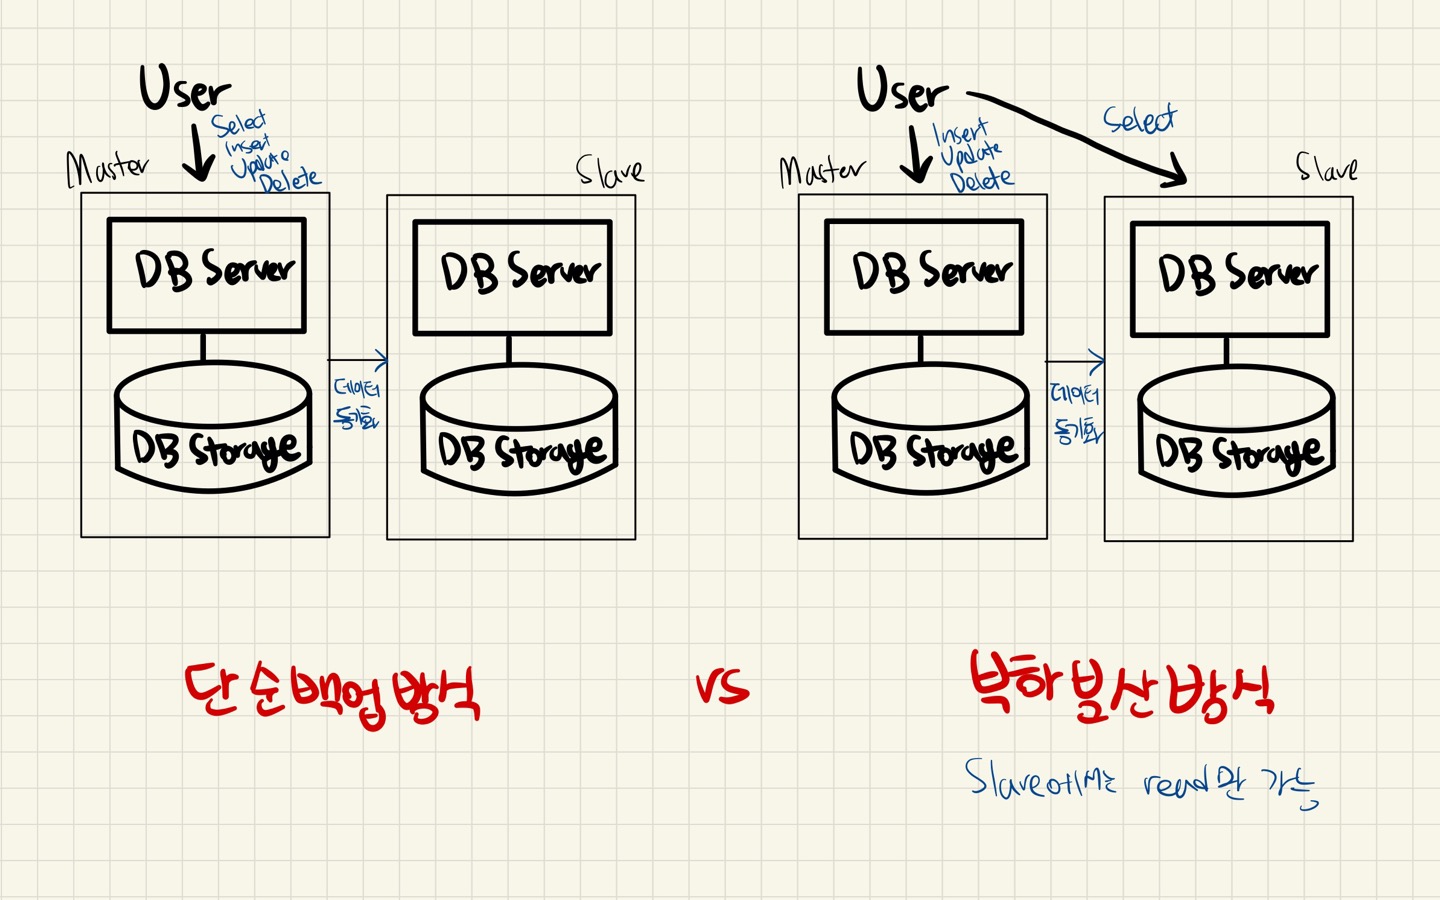 User
Select
Insert
Update
Delete
Master
Slave
DB Server
DB Server
데이터
동기화
DB Storage
DB Storage
User
Select
Insert
Update
Delete
Master
Slave
DB Server
DB Server
데이터
동기화
DB Storage
DB Storage
단순백업방식
vs
부하분산방식
Slave에서는 read만 가능